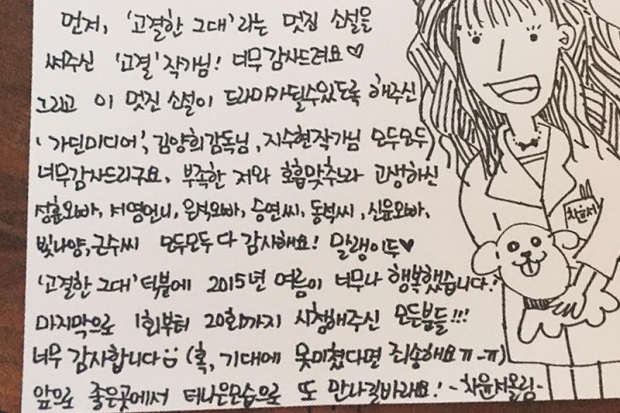 먼저, '고결한 그대' 라는 멋진 소설을
써주신 '고결' 작가님! 너무 감사드려요♡
그리고 이 멋진 소설이 드라마가 될수있도록 해주신
'가딘미디어', 김양희감독님, 지수현작가님 모두모두
너무감사드리구요, 부족한 저와 호흡맞추느라 고생하신
성훈오빠, 서영언니, 은석오빠, 승연씨, 동석씨, 신윤오빠,
빛나양, 근수씨 모두모두 다 감사해요! 말랭이두♥
'고결한 그대' 덕분에 2015년 여름이 너무나 행복했습니다!
마지막으로 1회부터 20회까지 시청해주신 모든분들!!!
너무 감사합니다 (혹, 기대에 못미쳤다면 죄송해요ㅠ-ㅠ)
앞으로 좋은곳에서 더나은모습으로 또 만나길바라요! -차윤서올림-
차윤서